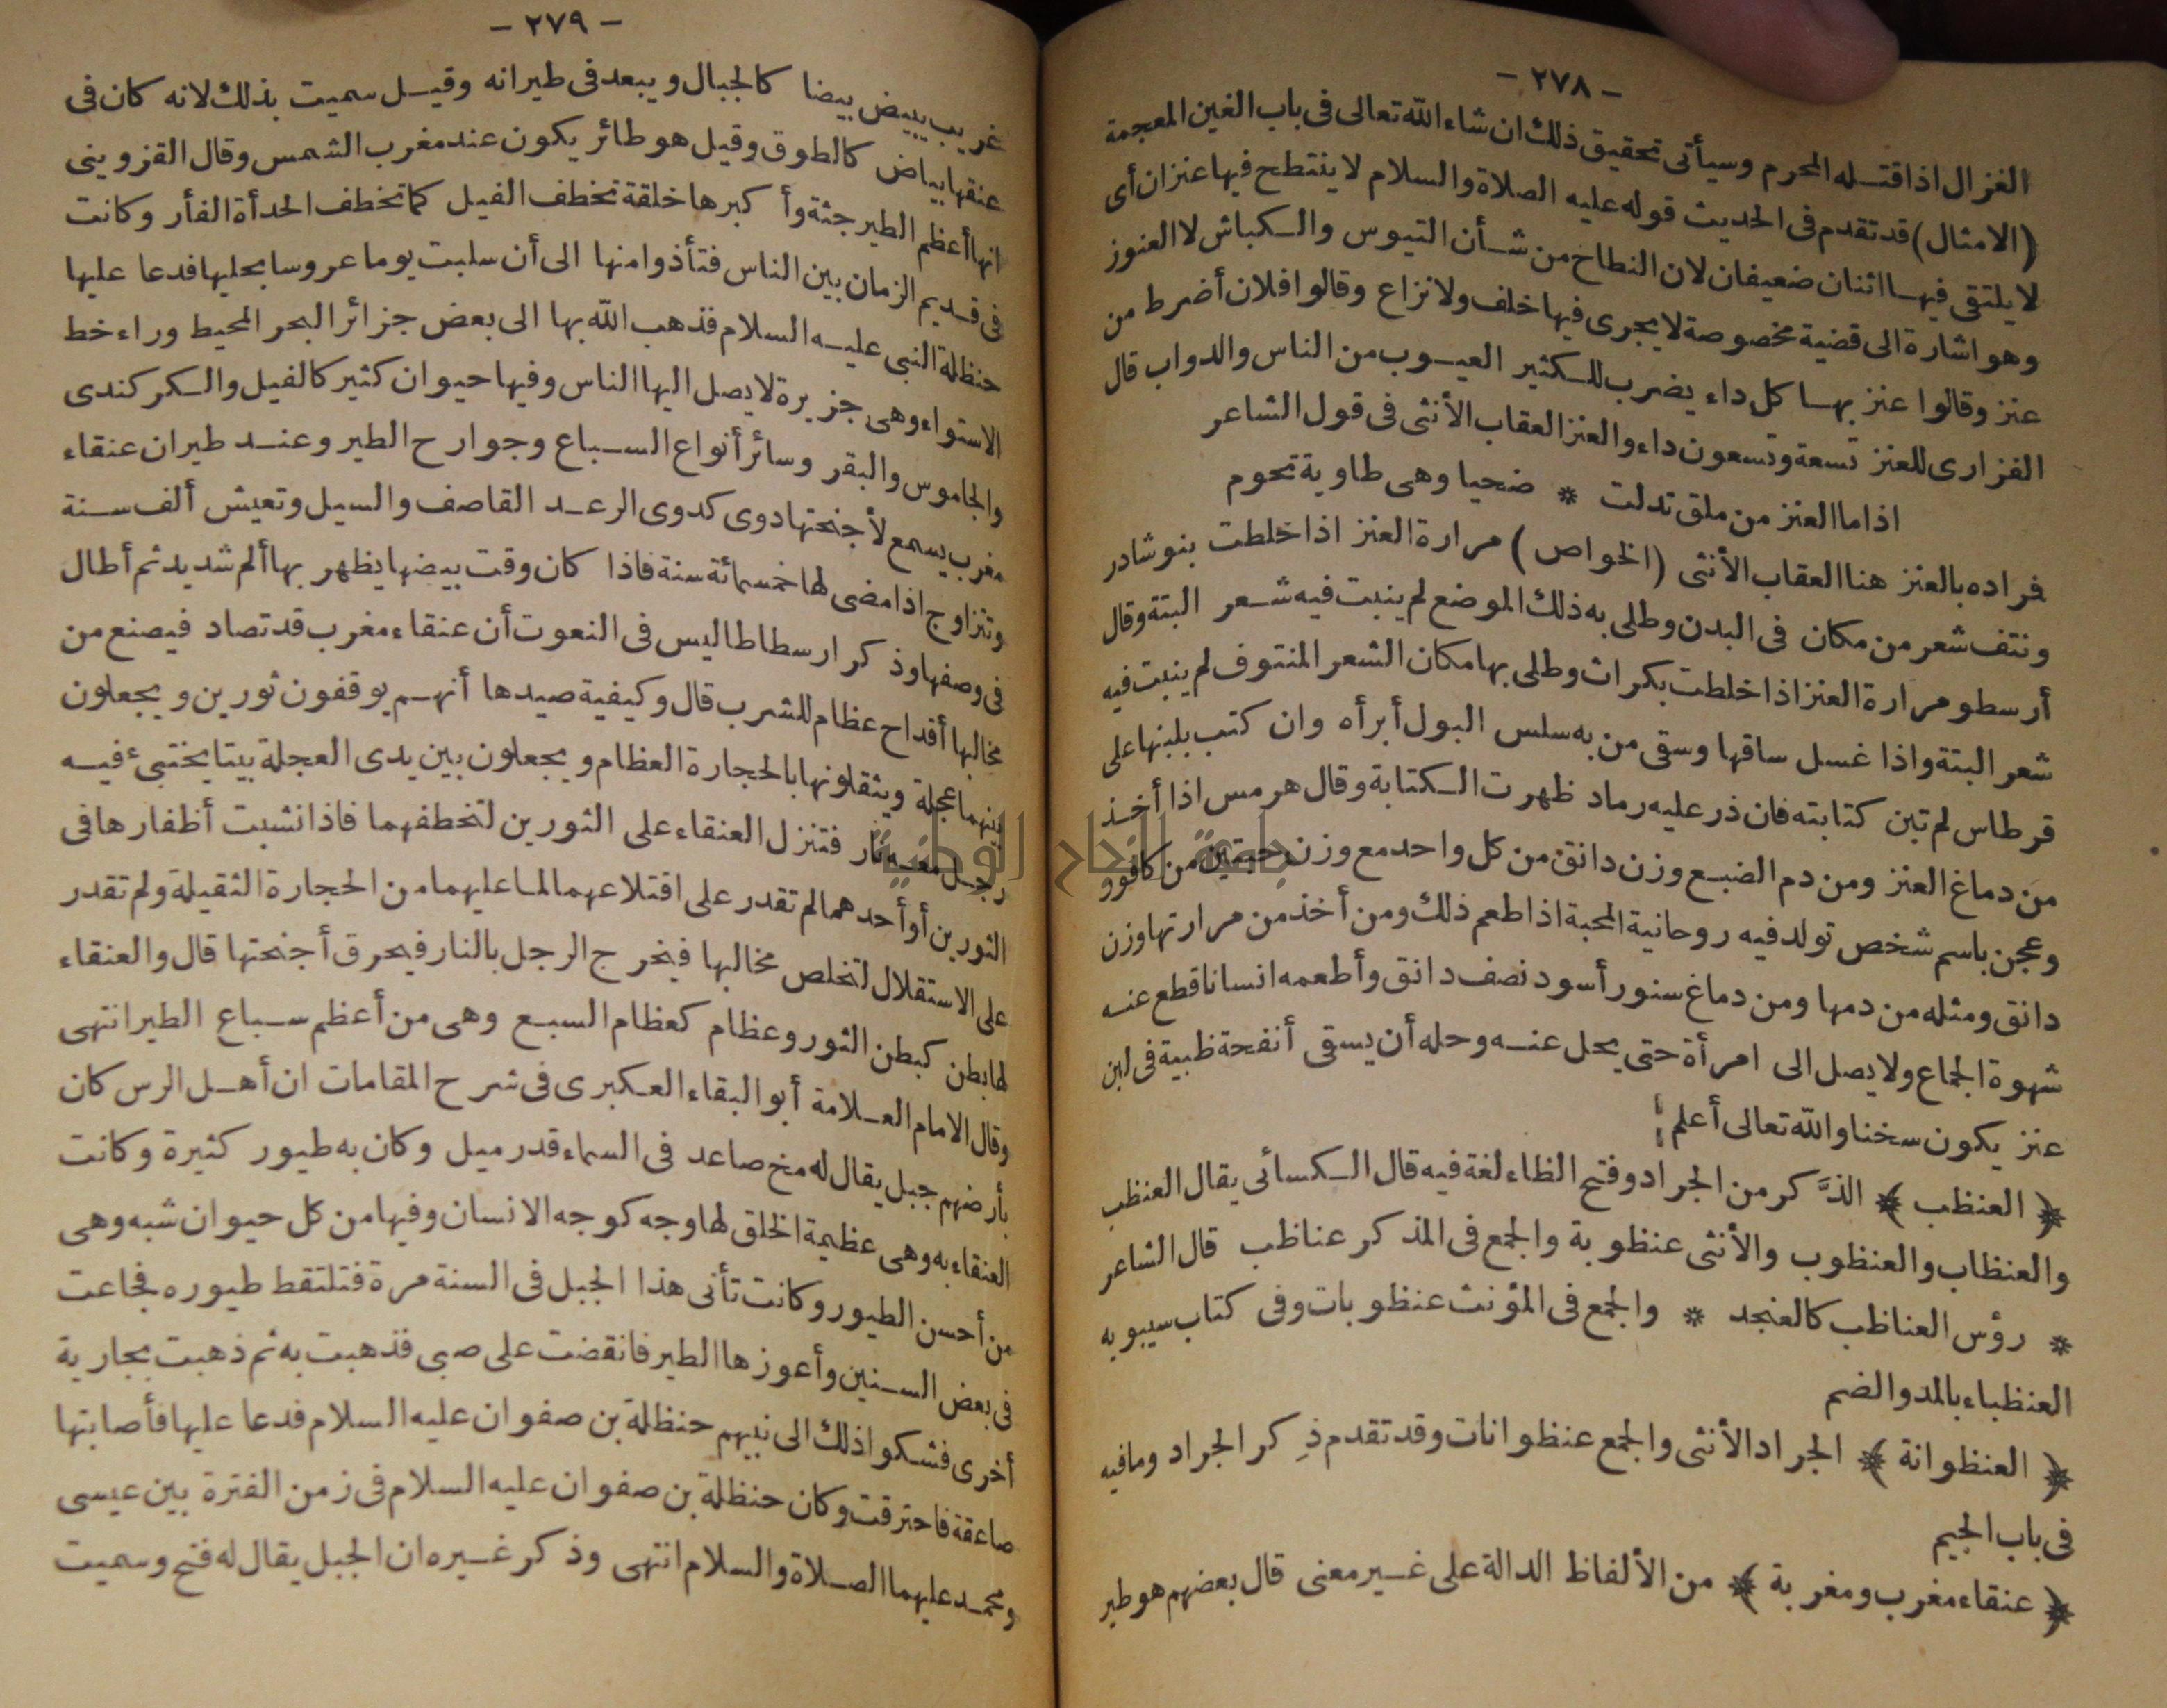 — ٢٧٨ —
الغزال اذا قتله المحرم وسيأتى تحقيق ذلك ان شاء الله تعالى فى باب الغين المعجمة
(الامثال) قد تقدم فى الحديث قوله عليه الصلاة والسلام لا ينتطح فيها عنزان أى
لا يلتقى فيها اثنان ضعيفان لان النطاح من شأن التيوس والكباش لا العنوز
وهو اشارة الى قضية مخصوصة لا يجرى فيها خلف ولا نزاع وقالوا فلان أضرط من
عنز وقالوا عنز بها كل داء يضرب للكثير العيوب من الناس والدواب قال
الفزارى للعنز تسعة وتسعون داء والعنز العقاب الأنثى فى قول الشاعر
اذا ما العنز من ملق تدلت * ضحيا وهى طاوية تحوم
فراده بالعنز هنا العقاب الأنثى (الخواص) مرارة العنز اذا خلطت بنوشادر
ونتف شعر من مكان فى البدن وطلى به ذلك الموضع لم ينبت فيه شعر البتة وقال
أرسطو مرارة العنز اذا خلطت بكراث وطلى بها مكان الشعر المنتوف لم ينبت فيه
شعر البتة واذا غسل ساقها وسقى من به سلس البول أبرأه وان كتب بلبنها على
قرطاس لم تبن كتابته فان ذر عليه رماد ظهرت الكتابة وقال هرمس اذا أخذ
من دماغ العنز ومن دم الضبع وزن دانق من كل واحد مع وزن حبتين من كافور
وعجن باسم شخص تولد فيه روحانية المحبة اذا طعم ذلك ومن أخذ من مرارتها وزن
دانق ومثله من دمها ومن دماغ سنور أسود نصف دانق وأطعمه انسانا قطع عنه
شهوة الجماع ولا يصل الى امرأة حتى يحل عنه وحله أن يسقى أنفحة ظبية فى لبن
عنز يكون سخنا والله تعالى أعلم
﴿ العنظب ﴾ الذَّكر من الجراد وفتح الظاء لغة فيه قال الكسائى يقال العنظب
والعنظاب والعنظوب والأنثى عنظوبة والجمع فى المذكر عناظب قال الشاعر
* رؤس العناظب كالعنجد * والجمع فى المؤنث عنظوبات وفى كتاب سيبويه
العنظباء بالمد والضم
﴿ العنظوانة ﴾ الجراد الأنثى والجمع عنظوانات وقد تقدم ذِكر الجراد وما فيه
فى باب الجيم
﴿ عنقاء مغرب ومغربة ﴾ من الألفاظ الدالة على غير معنى قال بعضهم هو طير
— ٢٧٩ —
غريب يبيض بيضا كالجبال ويبعد فى طيرانه وقيل سميت بذلك لانه كان فى
عنقها بياض كالطوق وقيل هو طائر يكون عند مغرب الشمس وقال القزوينى
انها أعظم الطير جثة وأكبرها خلقة تخطف الفيل كما تخطف الحدأة الفأر وكانت
فى قديم الزمان بين الناس فتأذوا منها الى أن سلبت يوما عروسا بحليها فدعا عليها
حنظلة النبى عليه السلام فذهب الله بها الى بعض جزائر البحر المحيط وراء خط
الاستواء وهى جزيرة لا يصل اليها الناس وفيها حيوان كثير كالفيل والكركندى
والجاموس والبقر وسائر أنواع السباع وجوارح الطير وعند طيران عنقاء
مغرب يسمع لأجنحتها دوى كدوى الرعد القاصف والسيل وتعيش ألف سنة
وتتزاوج اذا مضى لها خمسمائة سنة فاذا كان وقت بيضها يظهر بها ألم شديد ثم أطال
فى وصفها وذكر ارسطاطاليس فى النعوت أن عنقاء مغرب قد تصاد فيصنع من
مخالبها أقداح عظام للشرب قال وكيفية صيدها أنهم يوقفون ثورين ويجعلون
بينهما عجلة ويثقلونها بالحجارة العظام ويجعلون بين يدى العجلة بيتا يختبئ فيه
رجل معه نار فتنزل العنقاء على الثورين لتخطفهما فاذا نشبت أظفارها فى
الثورين أو أحدهما لم تقدر على اقتلاعهما لما عليهما من الحجارة الثقيلة ولم تقدر
على الاستقلال لتخلص مخالبها فيخرج الرجل بالنار فيحرق أجنحتها قال والعنقاء
لها بطن كبطن الثور وعظام كعظام السبع وهى من أعظم سباع الطير انتهى
وقال الامام العلامة أبو البقاء العكبرى فى شرح المقامات ان أهل الرس كان
بأرضهم جبل يقال له مخ صاعد فى السماء قدر ميل وكان به طيور كثيرة وكانت
العنقاء به وهى عظيمة الخلق لها وجه كوجه الانسان وفيها من كل حيوان شبه وهى
من أحسن الطيور وكانت تأتى هذا الجبل فى السنة مرة فتلتقط طيوره فجاعت
فى بعض السنين وأعوزها الطير فانقضت على صبى فذهبت به ثم ذهبت بجارية
أخرى فشكوا ذلك الى نبيهم حنظلة بن صفوان عليه السلام فدعا عليها فأصابتها
صاعقة فاحترقت وكان حنظلة بن صفوان عليه السلام فى زمن الفترة بين عيسى
ومحمد عليهما الصلاة والسلام انتهى وذكر غيره ان الجبل يقال له فتح وسميت
جامعة النجاح الوطنية